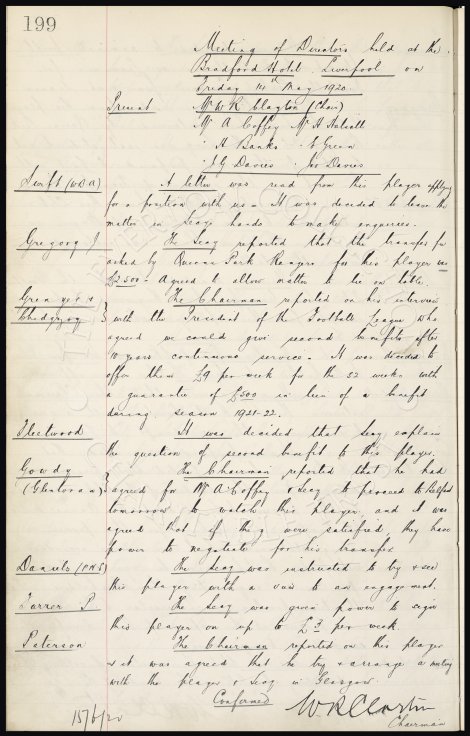 199
Meeting of Directors held at the
Bradford Hotel Liverpool on
Friday 14th May 1920.
Present Mr W R Clayton (Chair)
Mr A Coffey Mr H Halsall
" H Banks " E Green
" J G Davies " Jas Davies
Swift (WBA) A letter was read from this player applying
for a position with us. It was decided to leave the
matter in Secys hands to make enquiries.
Gregory J. The Secy reported that the transfer fee
asked by Queens Park Rangers for this player was
£2,500 - agreed to allow matter to lie on table.
Grenyer & The Chairman reported on his interview
Chedgzoy with the President of the Football League who
agreed we could give second benefits after
10 years continuous service. It was decided to
offer them £9 per week for the 52 weeks with
a guarantee of £500 in lieu of a benefit
during season 1921-22.
Fleetwood It was decided that Secy explain
the question of second benefit to this player.
Gowdy The Chairman reported that he had
(Glentoran) agreed for Mr A Coffey & Secy to proceed to Belfast
tomorrow to watch this player, and it was
agreed that if they were satisfied, they have
power to negotiate for his transfer.
Daniels (PNE) The Secy was instructed to try & see
this player with a view to an engagement.
Farrer P The Secy was given power to sign
this player on up to £3 per week.
Peterson The Chairman reported on this player
& it was agreed that he try & arrange a meeting
with the player & Secy in Glasgow.
Confirmed W R Clayton
15/6/20 Chairman